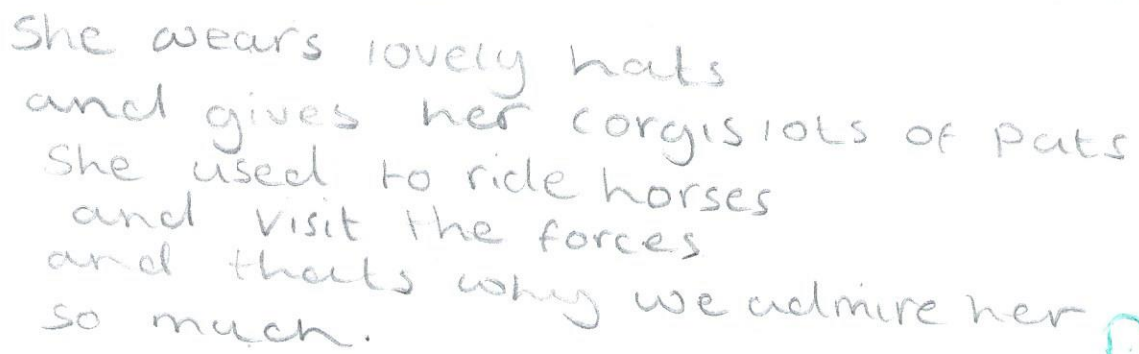 She wears lovely hats
and gives her corgis lots of pats
She used to ride horses
and visit the forces
and thats why we admire her
so much.